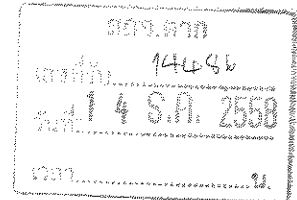 สถจ.ตาก
เลขที่รับ 14486
วันที่ 14 ธ.ค. 2558
เวลา น.